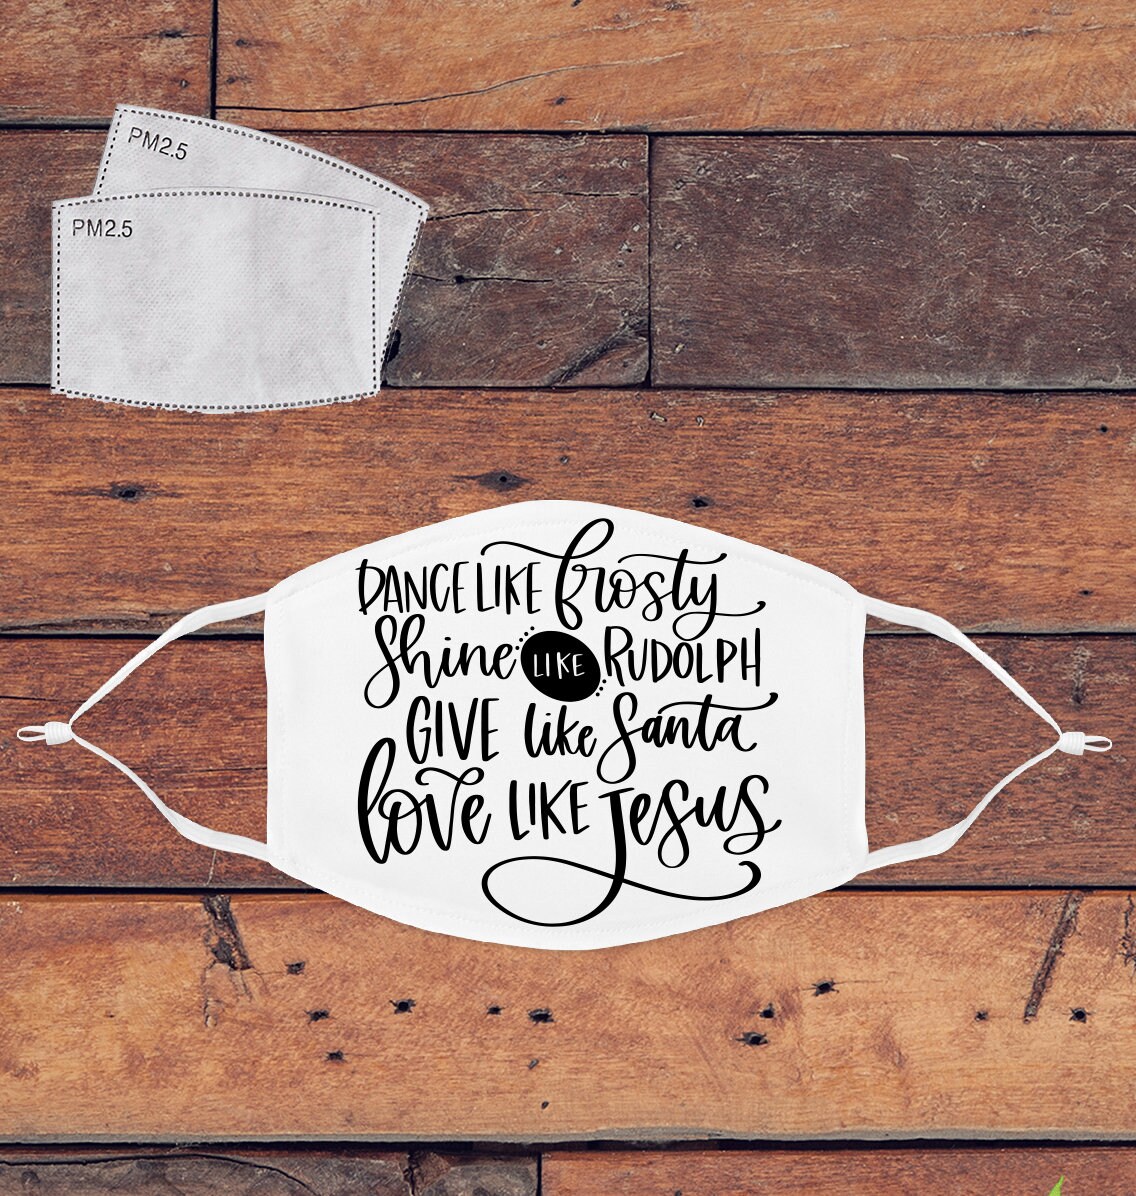 PM2.5
PM2.5
DANCE LIKE frosty
Shine LIKE RUDOLPH
GIVE like Santa
love LIKE Jesus